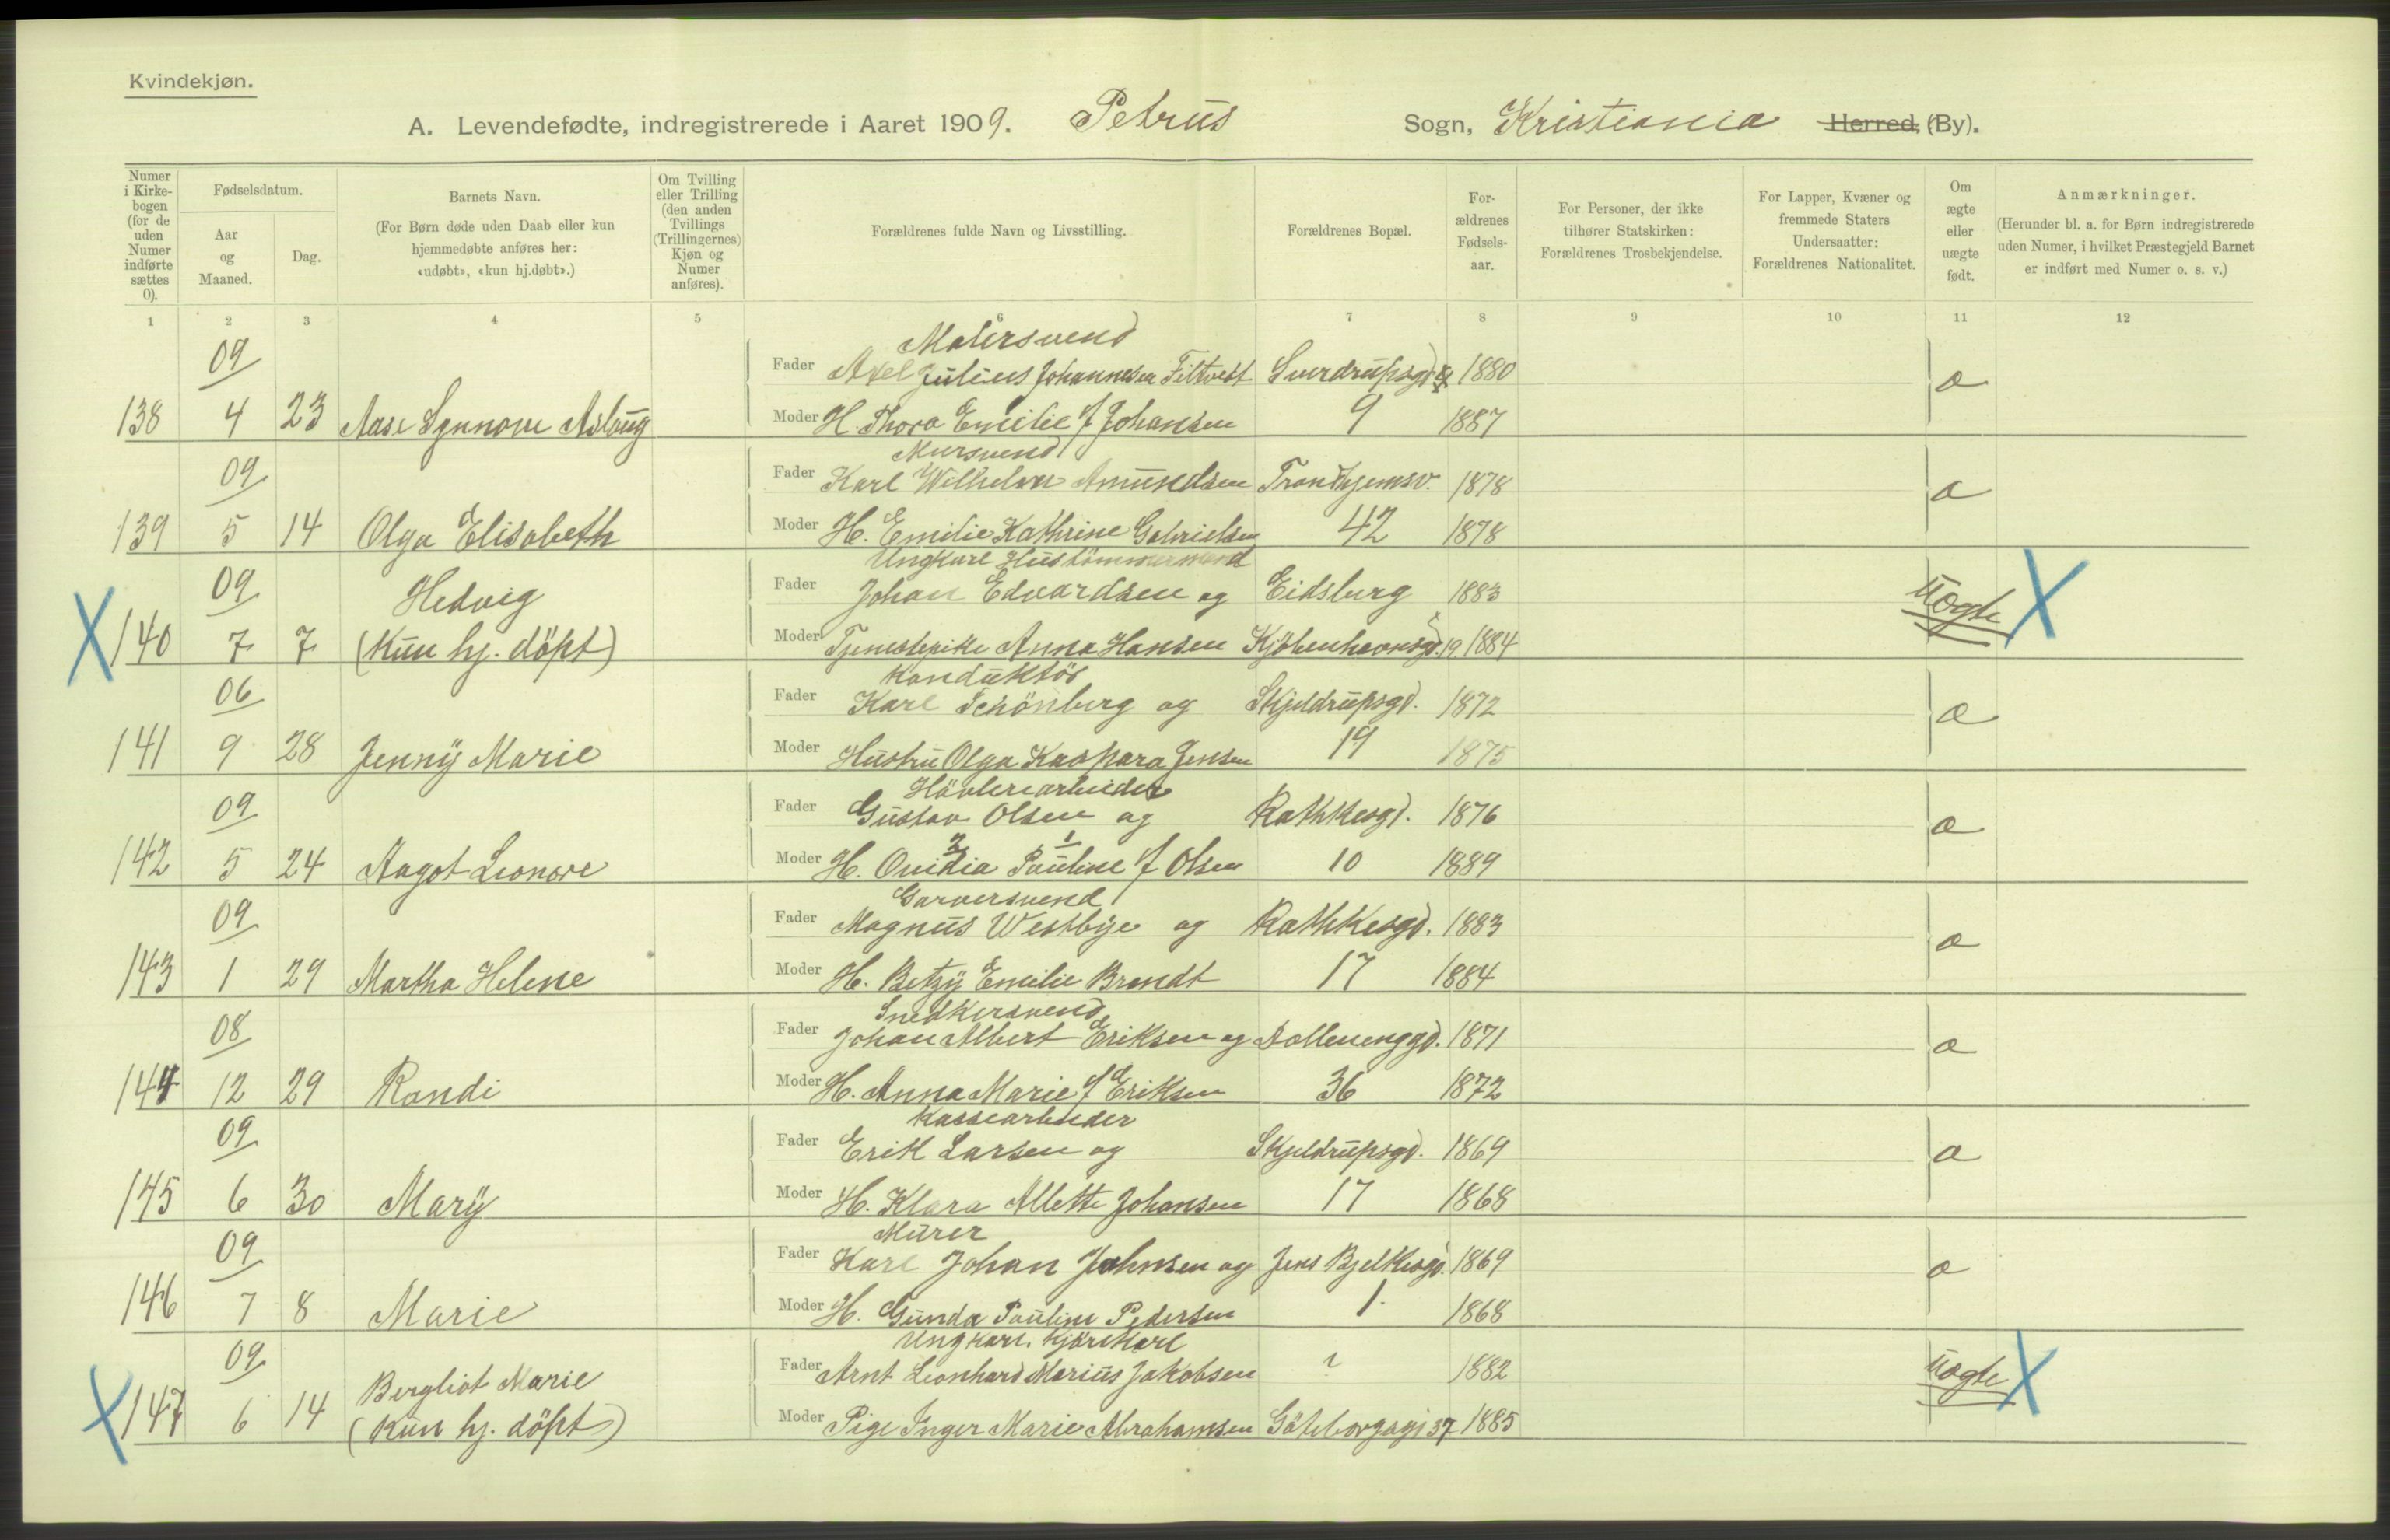 Kvindekjøn.
A. Levendefødte, indregistrerede i Aaret 1909. Petrus Sogn, Kristiania Herred, (By).
Numer i Kirkebogen (for de uden Numer indførte sættes 0).
Fødselsdatum.
Aar og Maaned.
Dag.
Barnets Navn.
(For Børn døde uden Daab eller kun hjemmedøbte anføres her: «udøbt», «kun hj.døbt».)
Om Tvilling eller Trilling (den anden Tvillings (Trillingernes) Kjøn og Numer anføres).
Forældrenes fulde Navn og Livsstilling.
Forældrenes Bopæl.
Forældrenes Fødselsaar.
For Personer, der ikke tilhører Statskirken: Forældrenes Trosbekjendelse.
For Lapper, Kvæner og fremmede Staters Undersaatter: Forældrenes Nationalitet.
Om ægte eller uægte født.
Anmærkninger.
(Herunder bl. a. for Børn indregistrerede uden Numer, i hvilket Præstegjeld Barnet er indført med Numer o. s. v.)
1 2 3 4 5 6 7 8 9 10 11 12
09 Malersvend
Fader Axel Julius Johannesen Filtvedt Sverdrupsgd 1880 æ
138 4 23 Aase Synnove Aslaug Moder H. Thora Emilie f Johansen 9 1887
09 Mursvend
Fader Karl Wilhelm Amundsen Trondhjemsv. 1878 æ
139 5 14 Olga Elisabeth Moder H. Emilie Kathrine Gabrielsen 42 1878
Ungkarl Hustömmermand
09 Hedvig Fader Johan Edvardsen og Eidsberg 1883 uægte X
X 140 7 7 (Kun hj. döpt) Moder Tjenestepike Anna Hansen Kjöbenhavnsgd. 19 1884
06 Konduktör
Fader Karl Schönberg og Skjeldrupsgd. 1872 æ
141 9 28 Jenny Marie Moder Hustru Olga Kaspara Jensen 19 1875
09 Hövleriarbeider
Fader Gustav Olsen og Rathkesgd. 1876 æ
2 1
142 5 24 Aagot Leonore Moder H. Ovidia Pauline f Olsen 10 1889
09 Garversvend
Fader Magnus Westbye og Rathkesgd. 1883 æ
143 1 29 Martha Helene Moder H. Betzy Emilie Brandt 17 1884
08 Snedkersvend
Fader Johan Albert Eriksen og Dollenenggd. 1871 æ
144 12 29 Randi Moder H. Anna Marie f Eriksen 36 1872
09 Kassearbeider
Fader Erik Larsen og Skjeldrupsgd. 1869 æ
145 6 30 Mary Moder H. Klara Allette Johansen 17 1868
09 Murer
Fader Karl Johan Johnsen og Jens Bjelkesgd. 1869 æ
146 7 8 Marie Moder H. Gunda Pauline Pedersen 1. 1868
Ungkarl. Kjörekarl
09 Bergliot Marie Fader Arnt Leonhard Marius Jakobsen ? 1882 uægte X
X 147 6 14 (Kun hj. döpt) Moder Pige Inger Marie Abrahamsen Göteborgsgd 37 1885